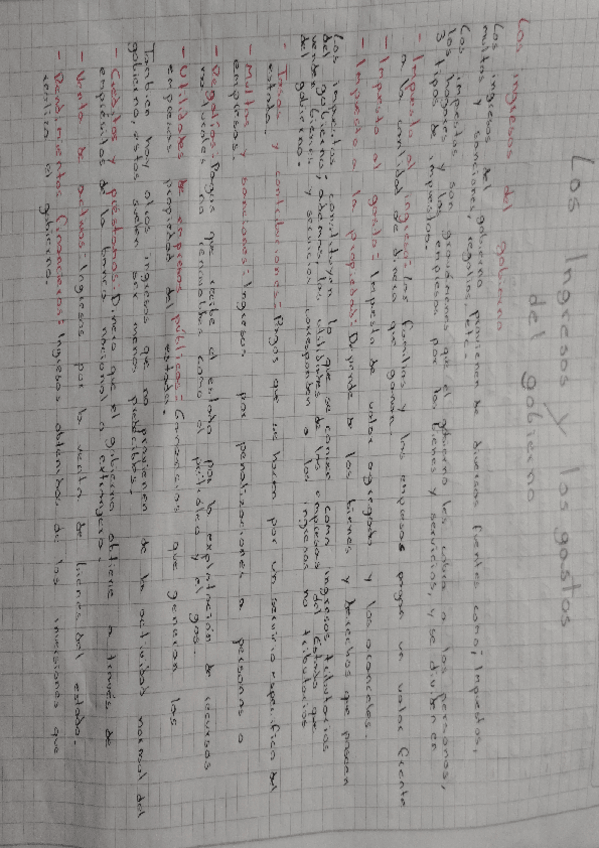 Los Ingresos y los gastos
del gobierno
Los ingresos del gobierno
Los ingresos del gobierno provienen de diversas fuentes como; Impuestos,
multas y sanciones, regalías, etc.
Los impuestos son gravámenes que el gobierno les cobra a las personas,
los hogares y las empresas por los bienes y servicios, y se dividen en
3 tipos de impuestos.
- Impuesto al ingreso: Las familias y las empresas pagan un valor frente
a la cantidad de dinero que ganan.
- Impuesto al gasto: Impuesto de valor agregado y los aranceles
- Impuesto a la propiedad: Depende de los bienes y derechos que poseen
Los impuestos constituyen lo que se conoce como ingresos tributarios
del gobierno; además, las utilidades de las empresas del Estado que
vende bienes y servicios corresponden a los ingresos no tributarios
del gobierno.
- Tasas y contribuciones: Pagos que se hacen por un servicio específico del
estado.
- Multas y sanciones: Ingresos por penalizaciones a personas o
empresas.
- Regalías: Pagos que recibe el estado por la explotación de recursos
naturales no renovables como el petróleo y el gas.
- Utilidades de empresas públicas: Ganancias que generan las
empresas propiedad del estado.
También hay otros ingresos que no provienen de la actividad normal del
gobierno, estos suelen ser menos predecibles.
- Créditos y préstamos: Dinero que el gobierno obtiene a través de
empréstitos de la banca nacional o extranjera.
- Venta de activos: Ingresos por la venta de bienes del estado.
- Rendimientos financieros: Ingresos obtenidos de las inversiones que
realiza el gobierno.